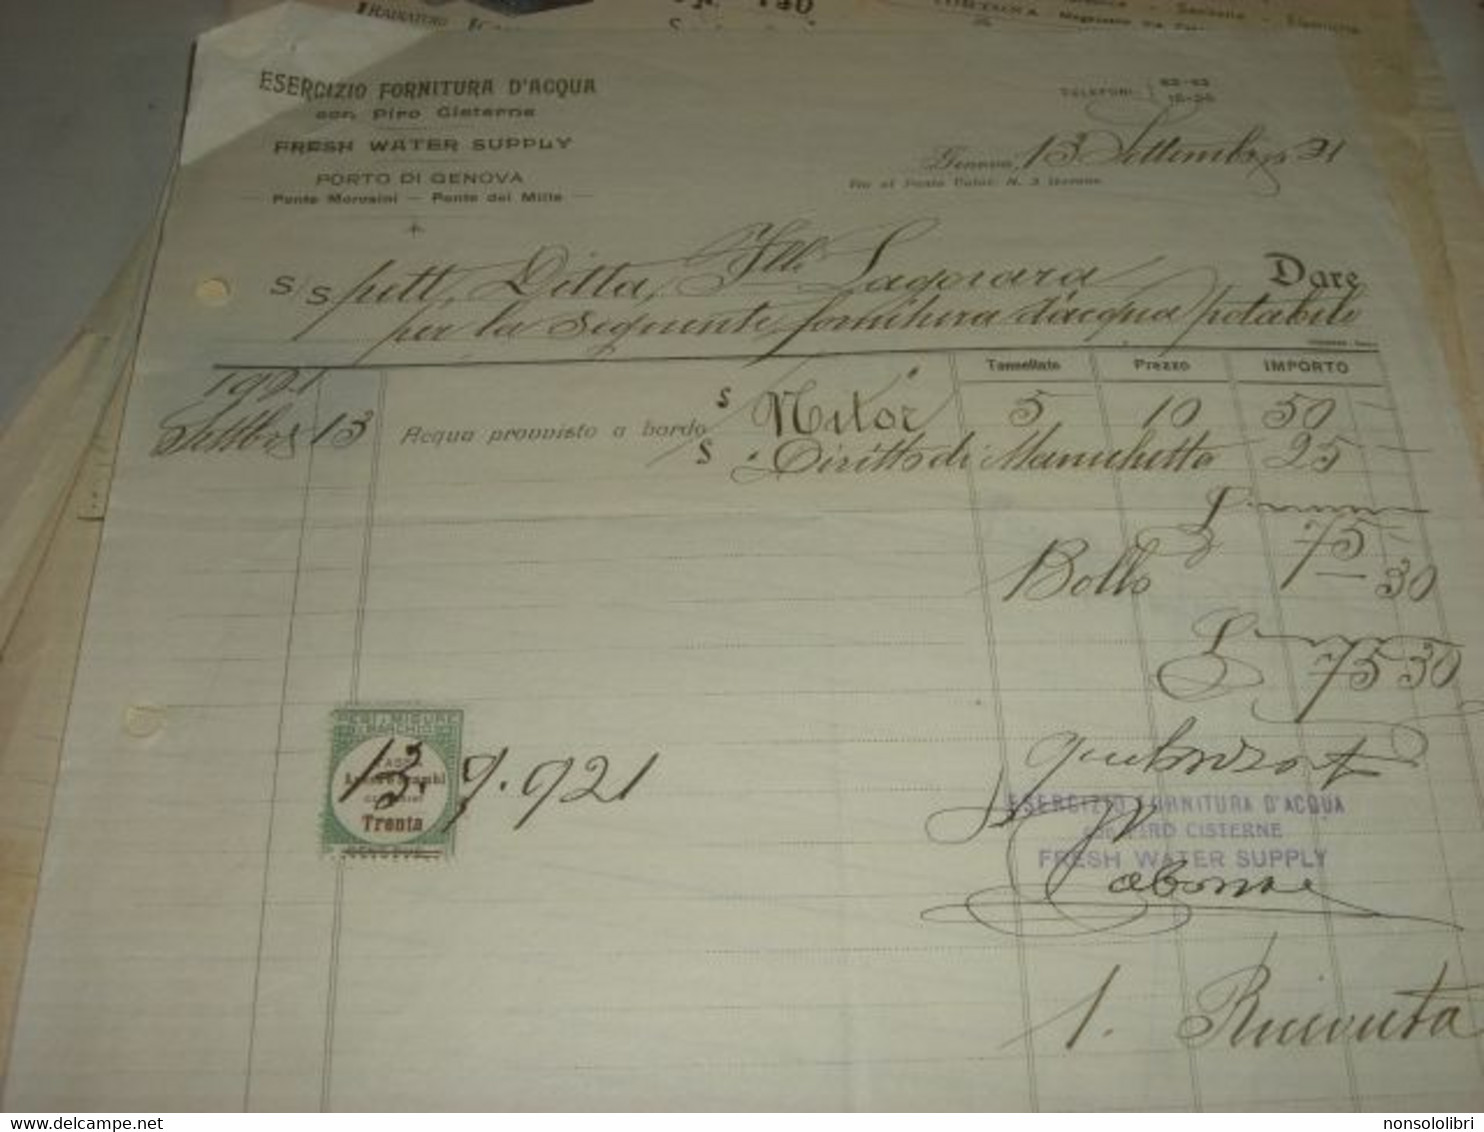 ESERCIZIO FORNITURA D'ACQUA
con Piro Cisterne
FRESH WATER SUPPLY
PORTO DI GENOVA
Ponte Morosini — Ponte dei Mille
TELEFONI
Genova, 13 Settembre 21
S/Spett. Ditta, Flli Lagorara Dare
per la seguente fornitura d'acqua potabile
Tonnellate Prezzo IMPORTO
1921
Settbre 13 Acqua provvista a bordo S Nitor 5 10 50
S Diritto di Manichetta 25
75
Bollo 30
75 30
PESI E MISURE
MARCHIO
Trenta
13.9.921
ESERCIZIO FORNITURA D'ACQUA
con PIRO CISTERNE
FRESH WATER SUPPLY
1. Ricevuta
delcampe.net
nonsololibri